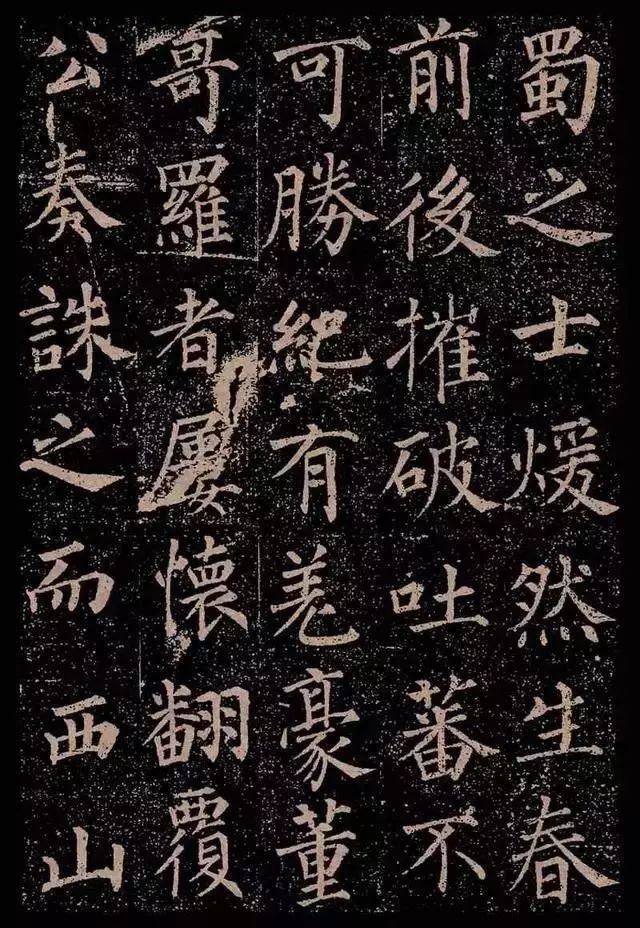 蜀之士煖然生春
前後摧破吐蕃不
可勝紀有羌豪董
哥羅者屢懷翻覆
公奏誅之而西山